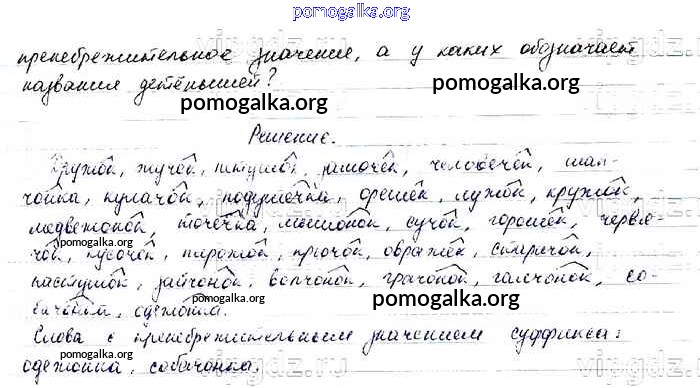 pomogalka.org
пренебрежительное значение, а у каких обозначает
названия детёнышей?
pomogalka.org pomogalka.org
Решение.
Дружок, жучок, петушок, замочек, человечек, шап-
чонка, кулачок, подушечка, орешек, лужок, кружок,
медвежонок, точечка, мышонок, сучок, горошек, червя-
чок, кусочек, пирожок, крючок, овражек, старичок,
pomogalka.org
пастушок, зайчонок, волчонок, грачонок, галчонок, со-
бачонка, одежонка.
pomogalka.org pomogalka.org
Слова с пренебрежительным значением суффикса:
одежонка, собачонка.
pomogalka.org